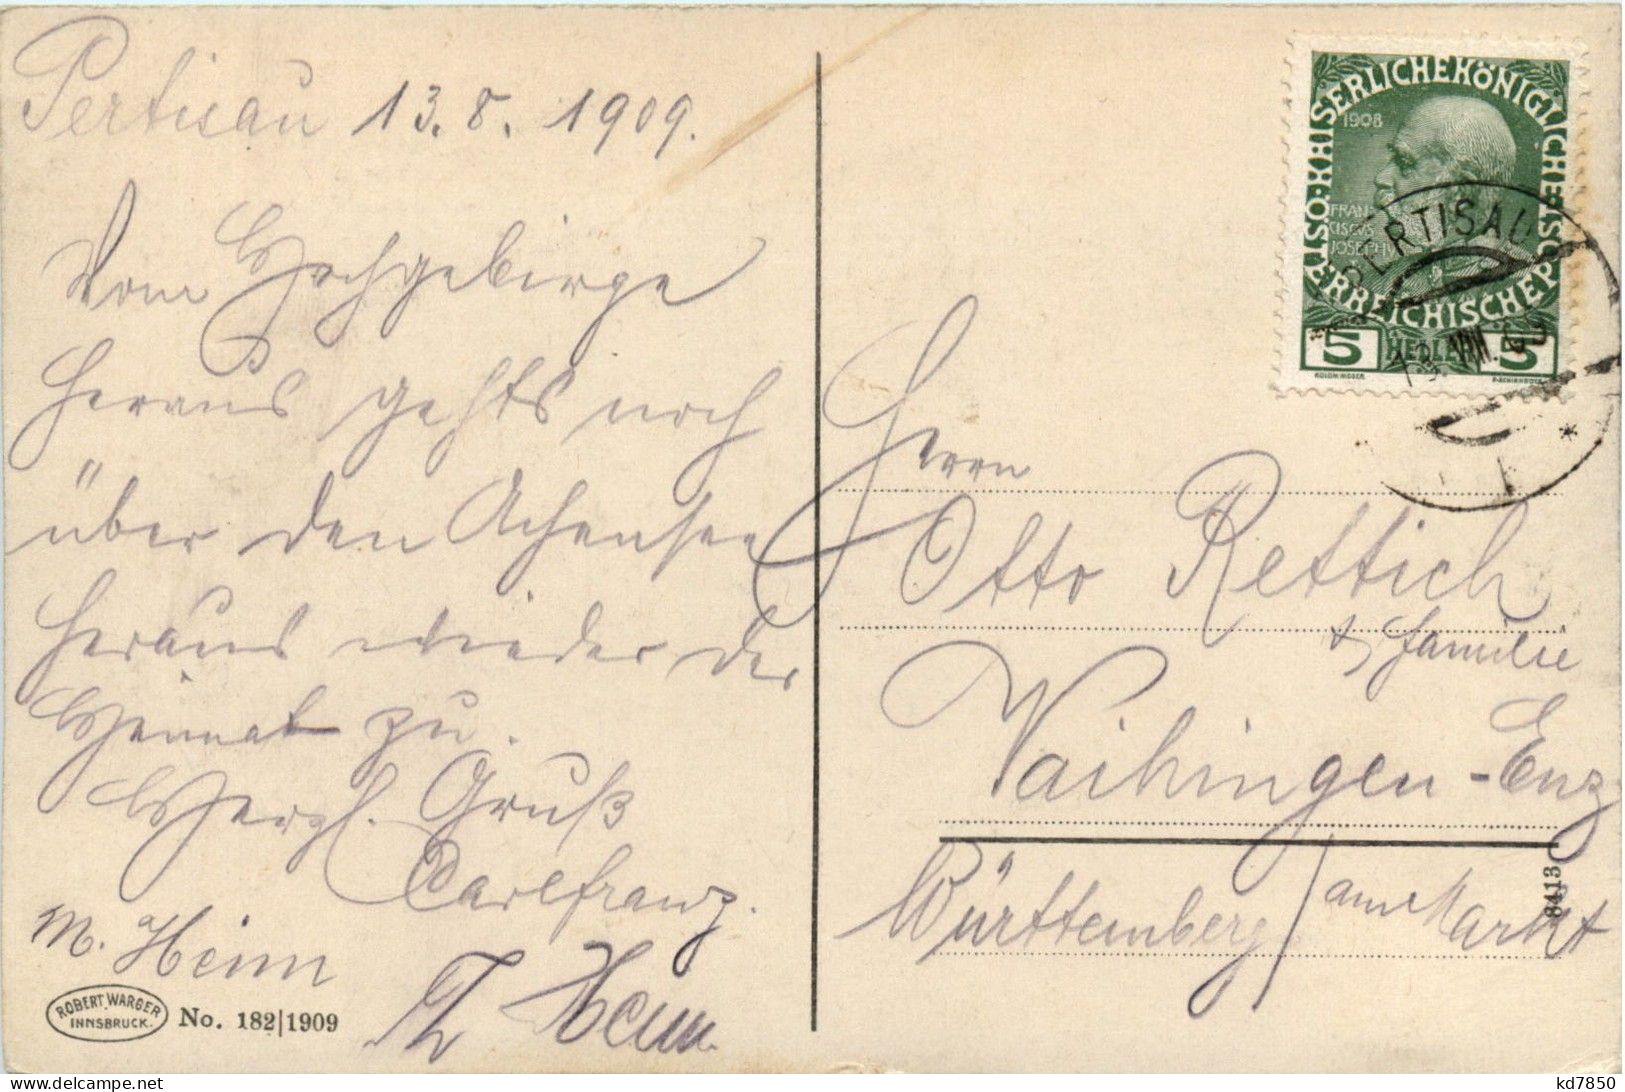 Pertisau 13. 8. 1909.
Vom Hochgebirge
heraus gehts noch
über den Achensee
heraus wieder der
Heimat zu.
Herzl. Gruß
Carlfranz.
M. Heim
Heim
ROBERT WARGER
INNSBRUCK.
No. 182|1909
KAISERLICHE KÖNIGLICHE
ÖSTERREICHISCHE POST
1908
FRAN
CISCVS
JOSEPH I
5 HELLER 5
KOLOM. MOSER.
F. SCHIRNBÖCK
PERTISAU
13. VIII. 09
*
Herrn
Otto Rettich
& Familie
Vaihingen - Enz
Württemberg / am Markt
8413
kd7850